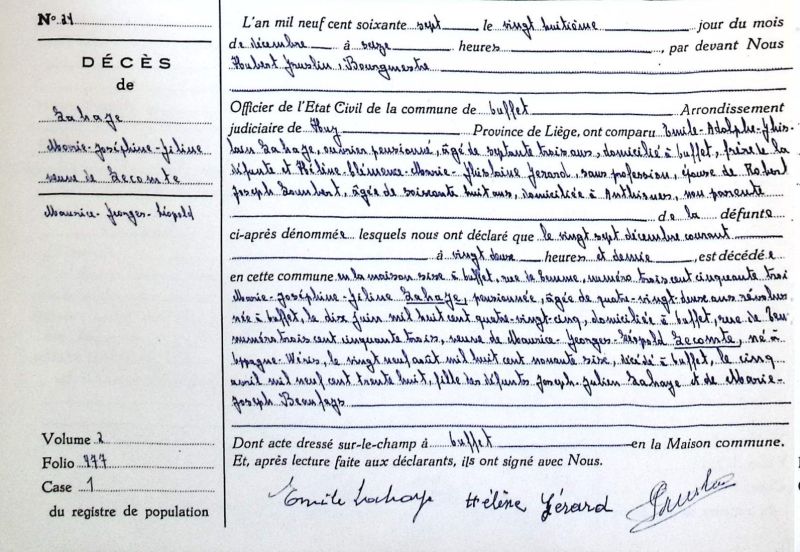 N° 31
DÉCÈS
de
Lahaye
Marie-Joséphine-Féline
veuve de Lecomte
Maurice-Georges-Léopold
Volume 2
Folio 177
Case 1
du registre de population
L'an mil neuf cent soixante sept le vingt huitième jour du mois
de décembre à seize heures , par devant Nous
Hubert , Bourgmestre
Officier de l'Etat Civil de la commune de Ouffet Arrondissement
judiciaire de Huy Province de Liège, ont comparu Emile-Adolphe-Ghis-
lain Lahaye, ouvrier pensionné, âgé de septante trois ans, domicilié à Ouffet, frère de la
défunte et Hélène-Clémence-Marie-Ghislaine Gérard, sans profession, épouse de Robert
Joseph Lambert, âgée de soixante huit ans, domiciliée à Anthisnes, non parente
de la défunte
ci-après dénommée lesquels nous ont déclaré que le vingt sept décembre courant
à vingt deux heures et demie , est décédée
en cette commune en la maison sise à Ouffet, rue de numéro trois cent cinquante trois
Marie-Joséphine-Féline Lahaye, pensionnée, âgée de quatre-vingt-deux ans révolus
née à Ouffet, le dix juin mil huit cent quatre-vingt-cinq, domiciliée à Ouffet, rue de
numéro trois cent cinquante trois, veuve de Maurice-Georges-Léopold Lecomte, né à
Oppagne-Wéris, le vingt neuf août mil huit cent nonante six, décédé à Ouffet, le cinq
avril mil neuf cent trente huit, fille des défunts Joseph-Julien Lahaye et de Marie-
Joseph Beaufays
Dont acte dressé sur-le-champ à Ouffet en la Maison commune.
Et, après lecture faite aux déclarants, ils ont signé avec Nous.
Emile Lahaye Hélène Gérard